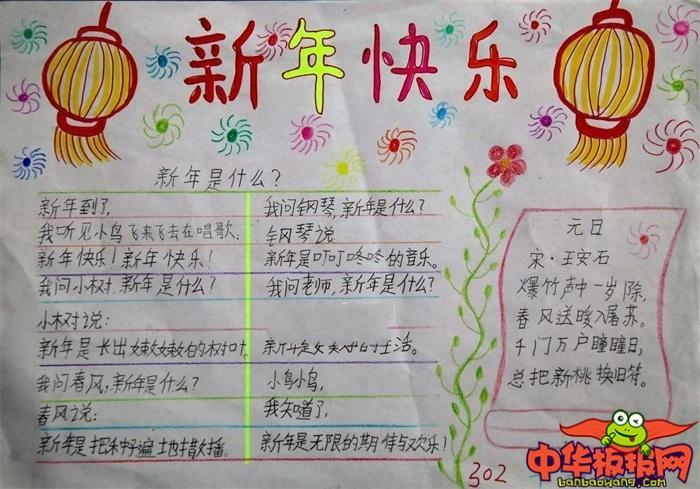 新年快乐
新年是什么?
新年到了,
我听见小鸟飞来飞去在唱歌:
新年快乐!新年快乐!
我问小树,新年是什么?
小树说:
新年是长出嫩嫩的树叶。
我问春风,新年是什么?
春风说:
新年是把种子遍地播。
我问钢琴,新年是什么?
钢琴说
新年是叮叮咚咚的音乐。
我问老师,新年是什么?
新年是 的生活。
小鸟小鸟,
我知道了,
新年是无限的期待与欢乐!
元日
宋·王安石
爆竹声中一岁除,
春风送暖入屠苏。
千门万户曈曈日,
总把新桃换旧符。
302
中华板报网
banbaowang.com